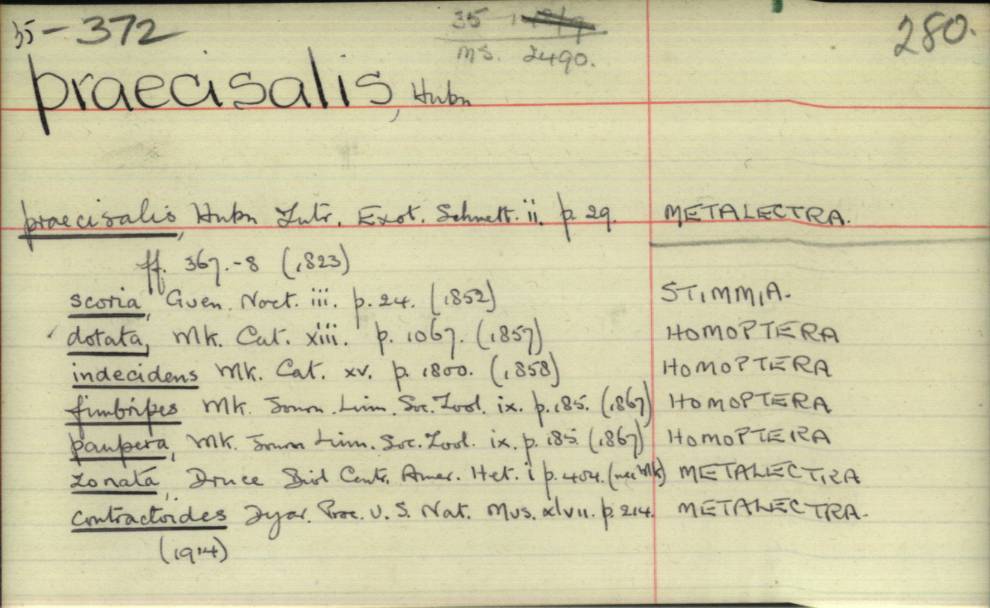 35-372
35
MS. 2490.
280.
praecisalis, Hubn
praecisalis, Hubn Zutr. Exot. Schmett. ii. p. 29. METALECTRA.
ff. 367.-8 (1823)
scoria, Guen. Noct. iii. p. 24. (1852) STIMMIA.
dotata, Mk. Cat. xiii. p. 1067. (1857) HOMOPTERA
indecidens Mk. Cat. xv. p. 1800. (1858) HOMOPTERA
fimbripes Mk. Journ. Linn. Soc. Zool. ix. p. 185. (1867) HOMOPTERA
paupera, Mk. Journ Linn. Soc. Zool. ix. p. 185. (1867) HOMOPTERA
zonata, Druce Biol Centr. Amer. Het. i p. 404. (nec Mk) METALECTRA
contractoides Dyar. Proc. U. S. Nat. Mus. xlvii. p. 214. METALECTRA.
(1914)